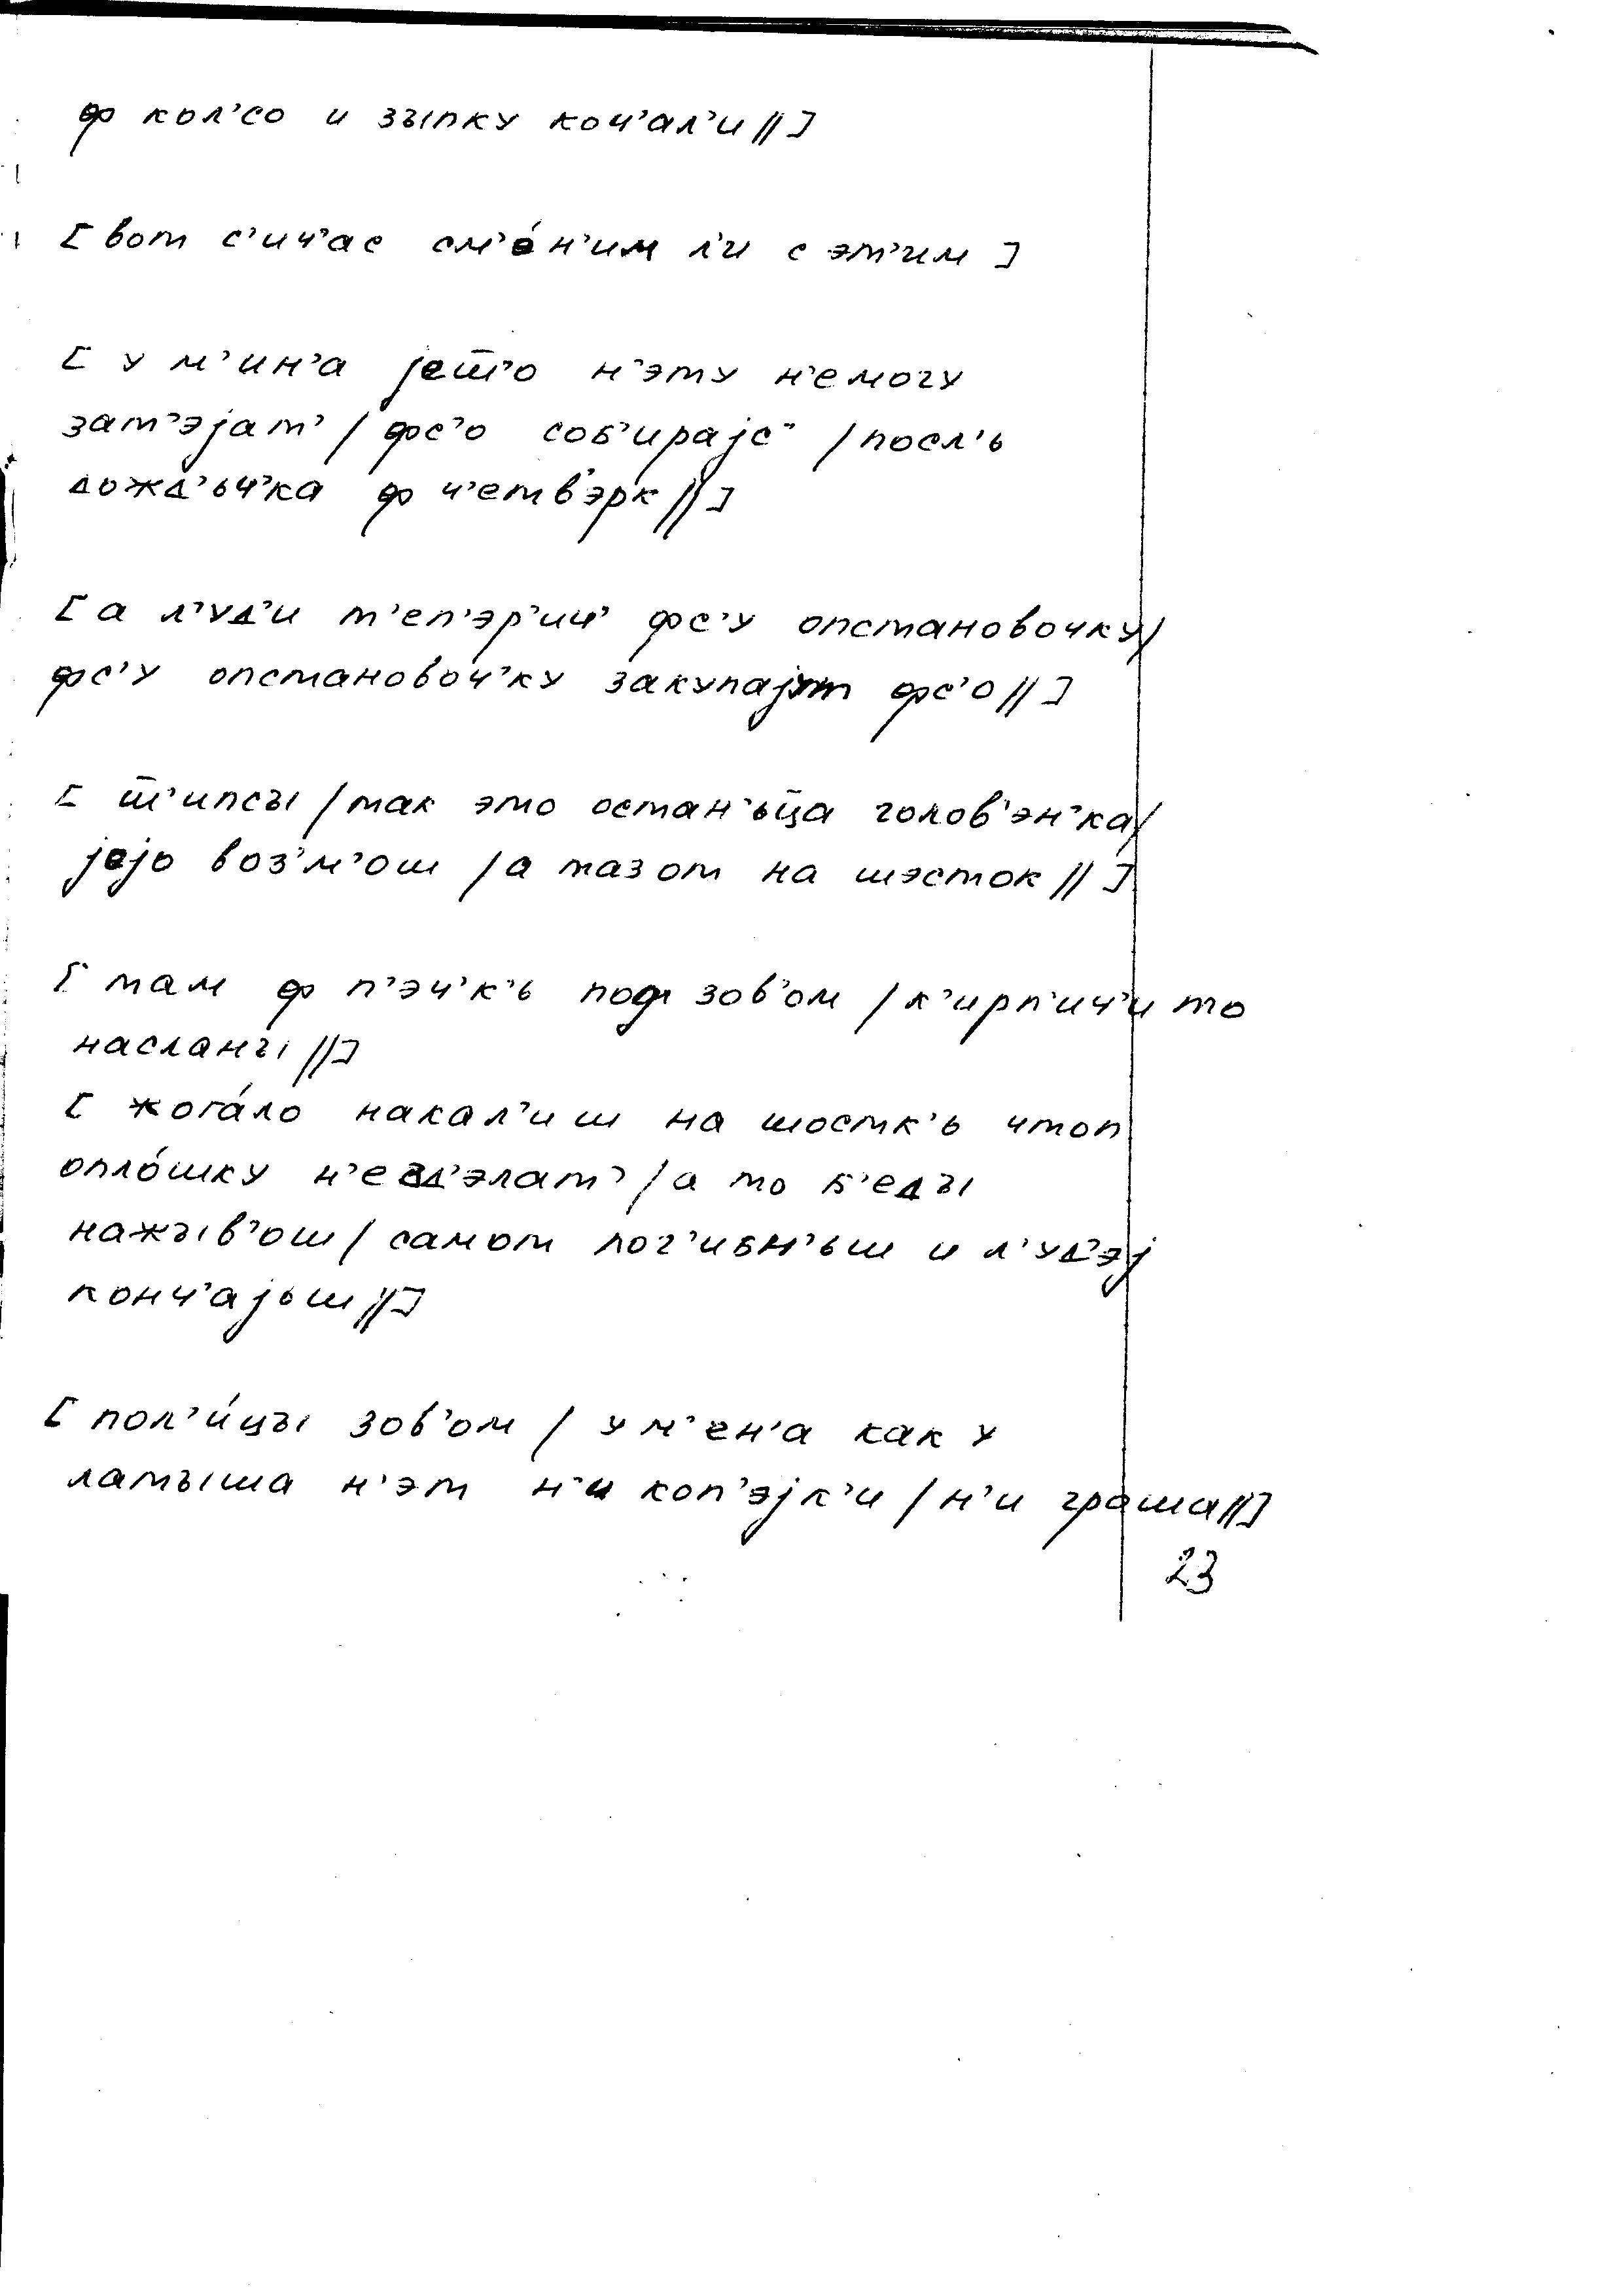 ф кол’со и зыпку коч’ал’и//]
[вот с’ич’ас см’е́н’им л’и с эт’им]
[у м’ин’а јеш̅’о н’эту н’емогу
зат’эјат’/фс’о соб’ирајс’/посл’ь
дожд’ьч’ка ф ч’етв’эрк//]
[а л’уд’и т’еп’эр’ич’ фс’у опстановочку/
фс’у опстановоч’ку закупајут фс’о//]
[ш̅’ипсы/так это остан’ьц̅а голов’эн’ка/
јејо воз’м’ош/а тазот на шэсток//]
[там ф п’эч’к’ь под зов’ом/к’ирп’ич’и то
насланы//]
[жога́ло накал’иш на шостк’ь чтоп
опло́шку н’езд’элат’/а то б’еды
нажыв’ош/самот пог’ибн’ьш и л’уд’эј
конч’ајьш//]
[пол’и́цы зов’ом/у м’ен’а как у
латыша н’эт н’и коп’эјк’и/н’и гроша//]
23